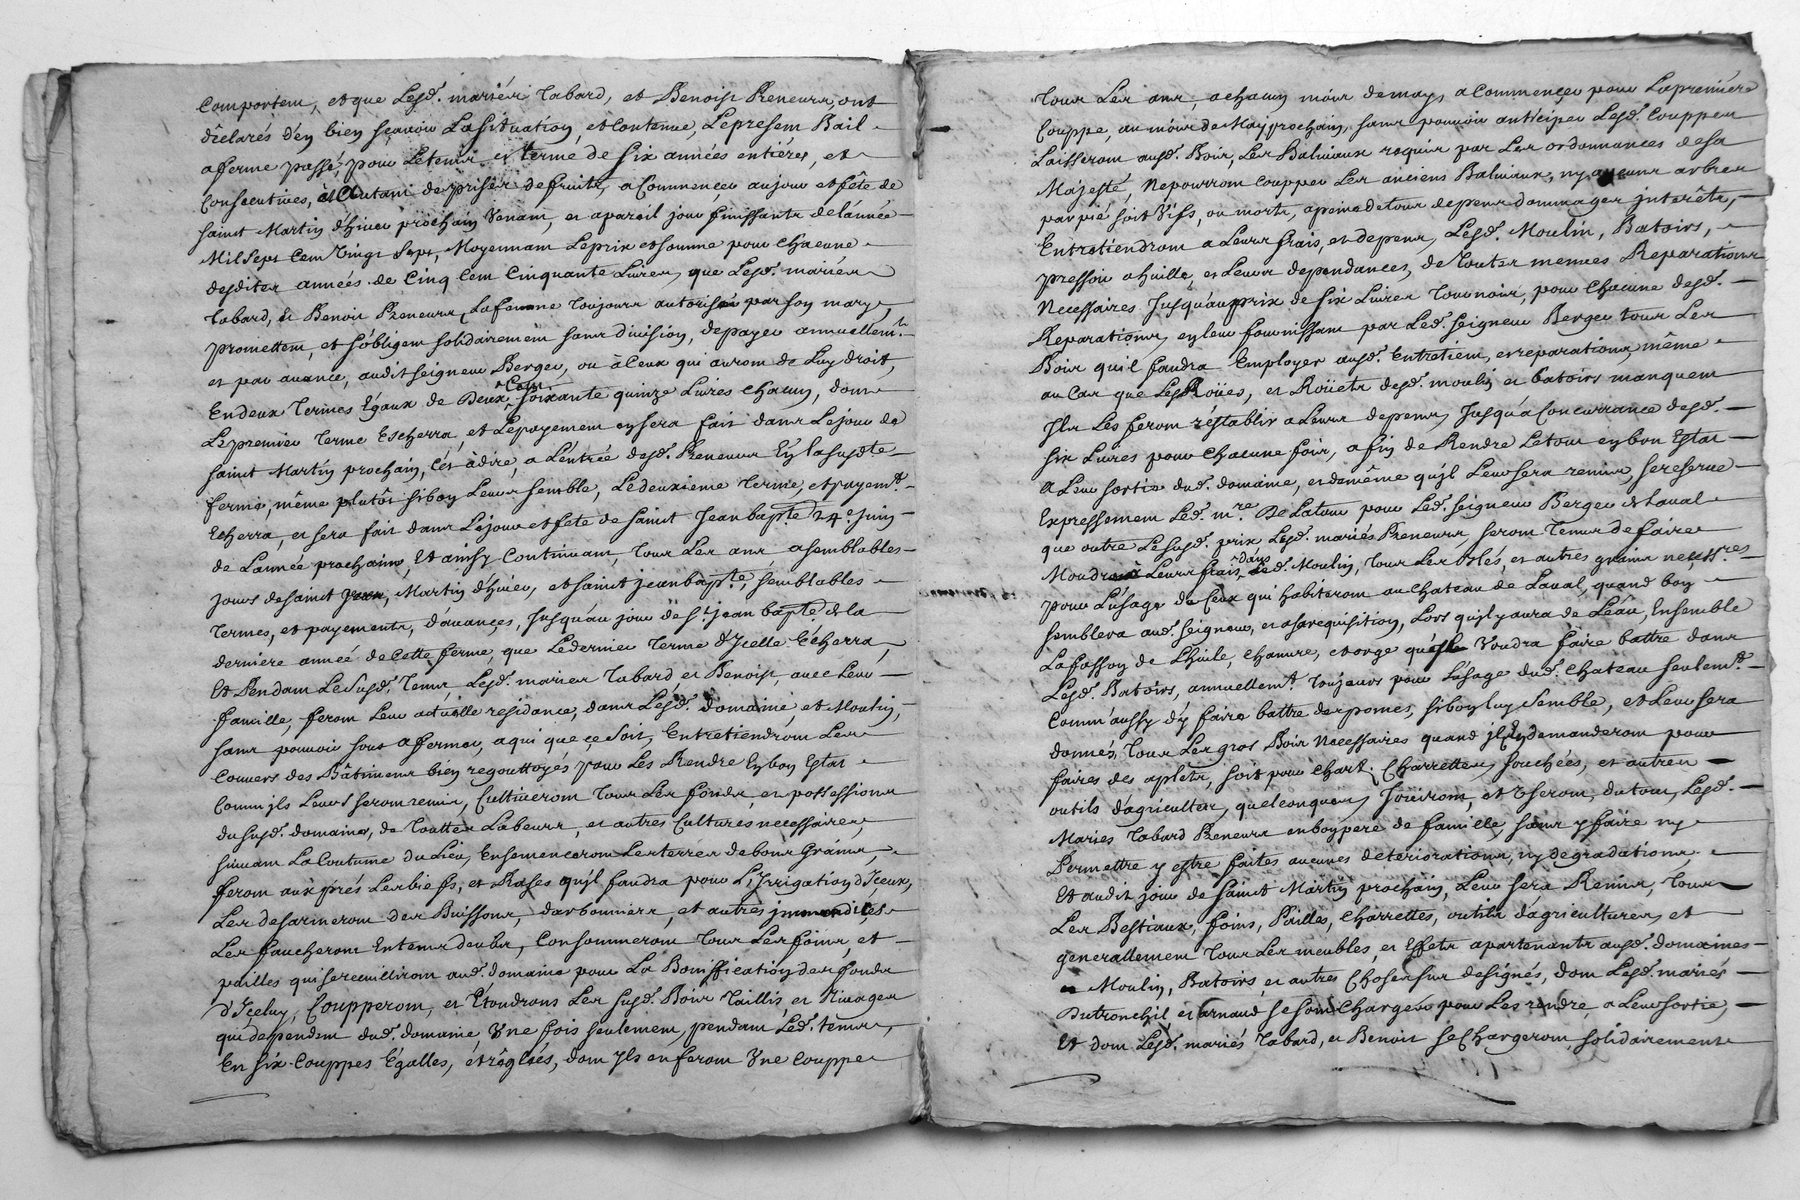 Comportem, et que Lesd. mariés Tabard, et Benoist Preneurs, ont
déclarés d'en bien sçavoir La situation, et Contenue, Le presem Bail
a ferme passé, pour Le tems et terme de six années entiéres, et
Consecutives, et Autant de prises de fruits, a Commencer au jour et fête de
saint Martin d'hiver prochain Venant, et a pareil jour finissants de L'année
Mil Sept Cem Vingt Sept, Moyennam Le prix et somme pour Chacune
desdites années de Cinq Cem Cinquante Livres, que Lesd. mariés
Tabard, et Benoit Preneurs, La femme Toujours autorisée par son mary,
promettem, et s'obligem solidairement sans division, de payer annuellemt.
et par avance, audit seigneur Berger, ou à Ceux qui aurom de Luy droit,
En deux Termes Egaux de Deux Cem soixante quinze Livres Chacun, dom
Le premier Terme Escherra, et Le payement en sera fait dans Le jour de
saint Martin prochain, C'est à dire, a L'éntrée desd. Preneurs En la susdte
ferme, même plutôt si bon Leur semble, Le deuxieme Terme, et payemt.
Echerra, et sera fait dans Le jour et fete de Saint Jean bapte. 24e Juin
de L'année prochaine, Et ainsy Continuam, Tous Les ans, a semblables
jours de saint Martin d'hiver, et saint jean bapte., semblables
Termes, et payements, d'avances, Jusqu'au jour de St. jean bapte. de la
derniere année de Cette ferme, que Le dernier Terme d'Ycelle Echerra,
Et Pendam Le Susd. Tems, Lesd. mariés Tabard et Benoist, avec Leur
famille, ferom Leur actuelle residance, dans Lesd. domaine et Moulin,
sans pouvoir sous affermer, a qui que çe Soit, Entretiendrom Les
Couvers des Bâtimens bien regouttoyés pour Les Rendre En bon Estat
Comm'jls Leurs serom remis, Cultiverom Tous Les fonds, et possessions
du susd. domaine, de Toutter Labeurs, et autres Cultures necessaires,
suivam La Coutume du Lieu, Ensemencerom Les terres de bons Grains,
ferom aux prés Les biefs, et Rases qu'jl faudra pour L'Jrrigation d'Jceux,
Les desarmerom des Buissons, darbonniers, et autres jmmondices
Les faucherom En tems deubs, Consommerom Tous Les foins, et
pailles qui se recuillirom aud. domaine pour La Bonification des fonds
d'Jçeluy, Coupperom, et Etoudrons Les susd. Bois Taillis, et Rivages
qui dependem dud. domaine, Une fois seulemem, pendam Led. tems,
En six Couppes Egalles, et réglées, dom Jls en ferom Une Couppe
Tous Les ans, a chacun mois de may, a Commencer pour La premiére
Couppe, au mois de May prochain, sans pouvoir anticiper Lesd. Couppes
Laisserom ausd. Bois, Les Baliveaux requis par Les ordonnances de sa
Majesté, Ne pourrom Coupper Les anciens Balivaux, ny aucuns arbres
par pié soit Vifs, ou morts, a peine de tous depens dommages jnterêts,
Entretiendrom a Leurs frais, et depens, Lesd. Moulin, Batoirs,
pressoir a huille, et Leurs dependances, de Toutes menues Reparations
Necessaires Jusqu'au prix de six Livres Tournois, pour Chacune desd.
Reparations, en leur fournissam par Led. seigneur Berger tous Les
Bois qu'il faudra Employer ausd. Entretiens, et reparations, même
au Cas que Les Roües, et Roüets desd. moulin et batoirs manquem
Jls Les ferom rêstablir a Leurs depens, Jusqu'a Concurrance desd.
six Livres pour Chacune fois, afin de Rendre Le tout en bon Estat
a Leur sortie dud. domaine, et demême qu'jl Leur sera remis, se reserve
Expressemem Led. mre. De Latour pour Led. seigneur Berger de Laval
que outre Le susd. prix Lesd. mariés Preneurs serom Tenus de faire
Moudre à Leurs frais, dans Led. Moulin, Tous Les blés, et autres grains necessres.
pour L'usage de Ceux qui habiterom au Chateau de Laval, quand bon
semblera aud. seigneur, et a sa requisition, Lors qu'jl y aura de L'êau, Ensemble
La fasson de L'huile, chanvre, et orge qu'jl Voudra faire battre dans
Lesd. Batoirs, annuellemt. Toujours pour L'usage dud. chateau seulemt.
Comm'aussy d'y faire battre des pomes, si bon luy Semble, et Leur sera
donnés, Tous Les gros Bois Necessaires quand jls En demanderom pour
faires des aplets, soit pour Chart, Charrettes, fouchées, et autres
outils d'agriculture, quelconques, Joüirom, et Vserom, du tour, Lesd.
Mariés Tabard Preneurs en bon pere de famille, sans y faire ny
Permettre y estre faites aucunes deteriorations, ny degradations,
Et audit jour de Saint Martin prochain, Leur sera Remis, Tous
Les Bestiaux, foins, Pailles, Charrettes, outils d'agricultures, et
generallement Tous Les meubles, et Effets apartenants ausd. domaines
Moulin, Batoirs, et autres Choses sus designés, dom Lesd. mariés
Dutronchil et arnaud se som Chargés pour Les rendre, a Leur sortie,
Et dom Lesd. mariés Tabard, et Benoit se Chargerom, solidairement